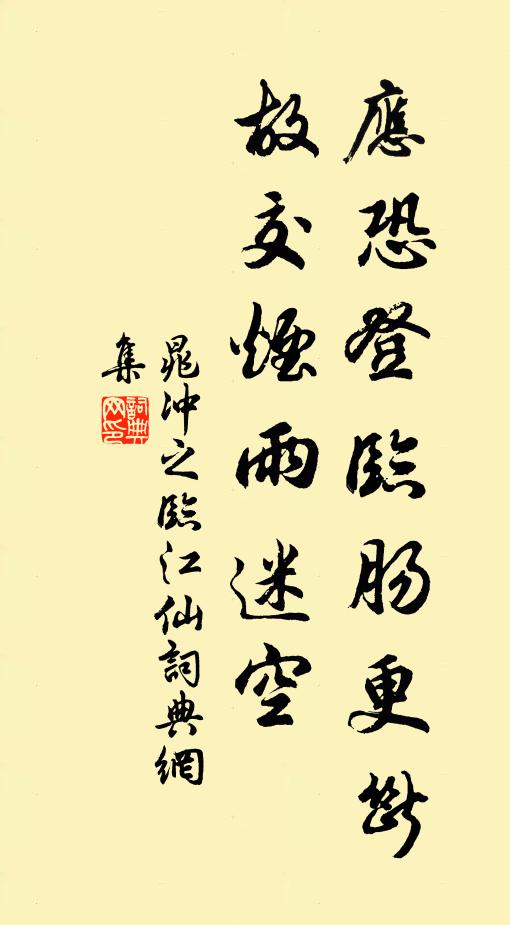 應恐登臨腸更斷
故交煙雨迷空
晁冲之臨江仙詞典網
集
詞典
网印